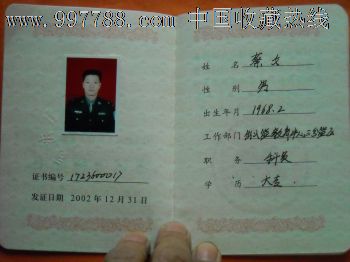 www.997788.com 中国收藏热线
证书编号 1723600017
发证日期 2002 年 12 月 31 日
姓 名 蔡文
性 别 男
出生年月 1968.2
工作部门
职 务 科员
学 历 大专